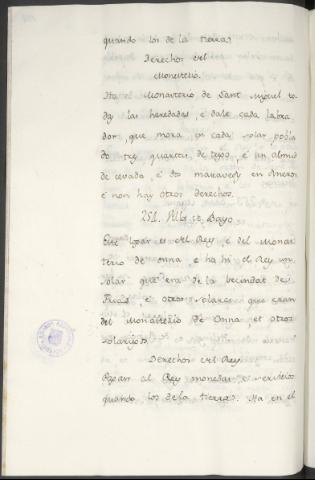 quando los de la tierra.
Derechos del
Monesterio.
Ha el Monesterio de Sant Miguel to
das las heredades, e dale cada labra
dor, que mora, en cada solar poblado
tres quartos de trigo, e un almud
de cevada, e dos maravedis en Enero:
e non hay otros derechos.
251. Villa de Bayo
Este logar es del Rey, e del Monas
terio de Onna, e ha hi el Rey un
solar que era de la becindat de
Frias, e otros solares que eran
del Monasterio de Onna, et otros
solariegos.
Derechos del Rey
Pagan al Rey monedas, e servicios
quando los de la tierra. Ha en el